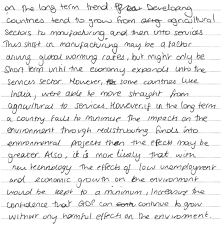 on the long term trend. Developing
countries tend to grow from agri
sectors to manufacturing, and then into services
Thus shift in manufacturing may be a factor
during global warming rates, but might only be
short term until the economy expands into the
services sector. However, some countries like
India, were able to move straight from
agricultural to services. However, if in the long term
a country fails to minimise the impacts on the
environment through redistributing funds into
environmental projects then the effects may be
greater. Also, it is more likely that with
new technology the effects of low unemployment
and economic growth on the environment
would be kept to a minimum, increasing the
confidence that GDP can continue to grow
without any harmful effects on the environment.